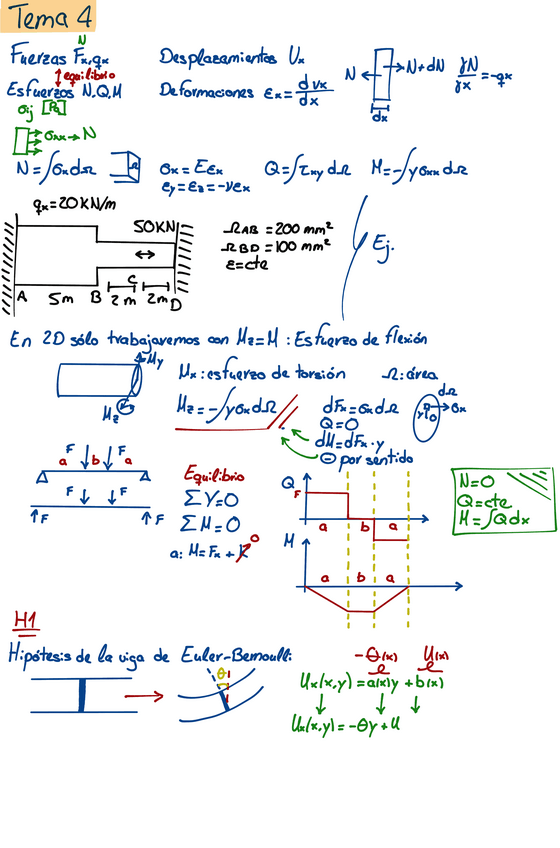 Tema 4
Fuerzas Fx,qx N
Desplazamientos Ux
N N+dN dx
∂N/∂x = -qx
equilibrio
Esfuerzos N,Q,M
Deformaciones εx = dux/dx
σij [Pa]
σxx → N
N=∫σxdΩ
σx = Eεx
εy = εz = -νεx
Q=∫τxy dΩ
M=-∫yσxx dΩ
qx=20KN/m
50KN
ΩAB = 200 mm²
ΩBD = 100 mm²
E=cte
Ej.
A 5m B 2m C 2m D
En 2D sólo trabajaremos con Mz=M : Esfuerzo de flexión
My
Mz
Mx: esfuerzo de torsión
Ω: área
Mz = -∫yσxdΩ
dFx=σxdΩ
Q=0
dM=dFx·y
⊖ por sentido
dΩ
y
σx
F F
a b a
F F
F F
Equilibrio
ΣY=0
ΣM=0
a: M=Fx + K 0
Q
F
a b a
M
a b a
N=0
Q=cte
M=∫Qdx
H1
Hipótesis de la viga de Euler-Bernoulli:
θ
-θ(x) U(x)
Ux(x,y) = a(x)y + b(x)
Ux(x,y) = -θy + u